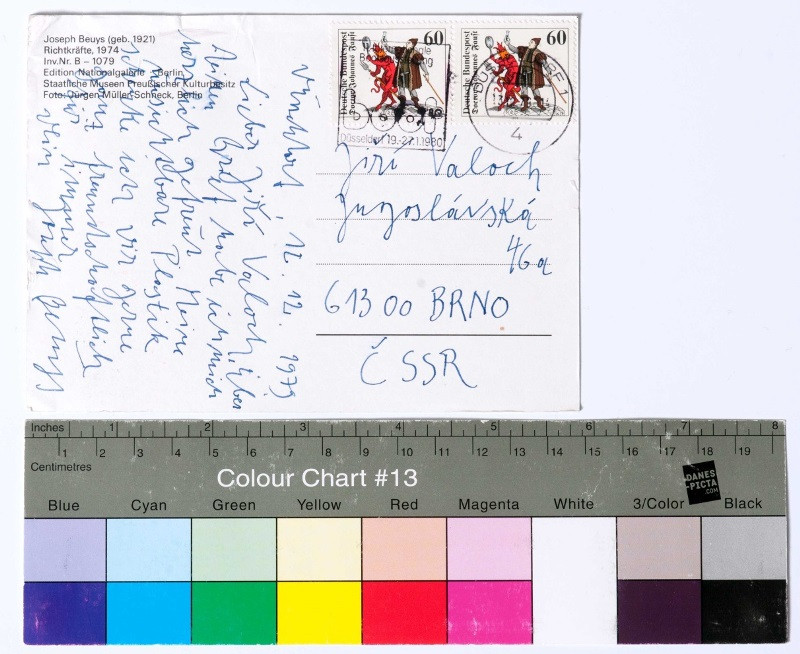 Joseph Beuys (geb. 1921)
Richtkräfte, 1974
Inv.Nr. B – 1079
Edition Nationalgalerie Berlin
Staatliche Museen Preußischer Kulturbesitz
Foto: Jürgen Müller-Schneck, Berlin
12. 12. 1979
Lieber Jiří Valoch, über
Deinen habe ich mich
herzlich gefreut Meine
Unsichtbare Plastik
schicke ich Dir gerne
Ganz freundschaftlich
wie immer
Dein Joseph Beuys
Deutsche Bundespost
Doctor Johannes Faust
60
Deutsche Bundespost
Doctor Johannes Faust
60
Düsseldorf 19.-27.1.1980
4
Jiří Valoch
Jugoslávská
46a
613 00 BRNO
ČSSR
Inches 1 2 3 4 5 6 7 8
Centimetres 1 2 3 4 5 6 7 8 9 10 11 12 13 14 15 16 17 18 19
Colour Chart #13
DANES
-PICTA
.COM
Blue Cyan Green Yellow Red Magenta White 3/Color Black